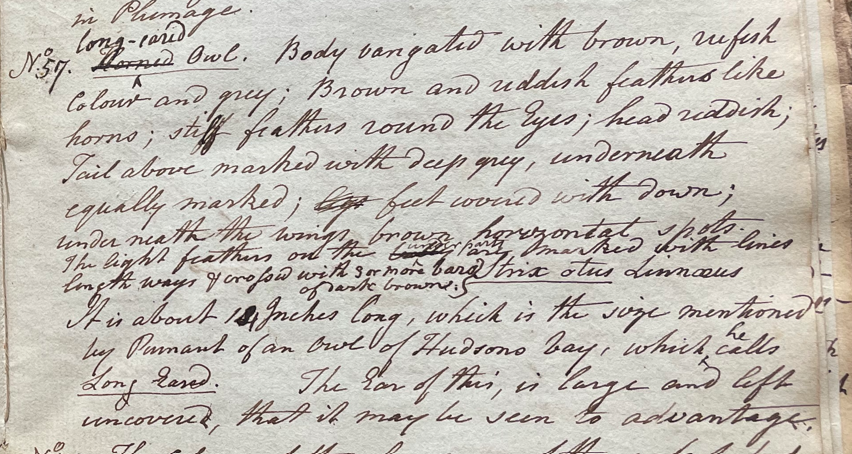 in Plumage.
long-eared
No. 57. Horned Owl. Body varigated with brown, refish
Colour and grey; Brown and reddish feathers like
horns; stiff feathers round the Eyes; head reddish;
Tail above marked with deep grey, underneath
equally marked; feet covered with down;
underneath the wings brown horozontal spots.
The light feathers on the under part are marked with lines
length ways & crossed with 3 or more bars
of dark brown. Strix otus Linnæus
It is about 14 Inches long, which is the size mentioned
by Pennant of an Owl of Hudsons bay, which he calls
Long Eared. The Ear of this, is large and left
uncovered, that it may be seen to advantage.